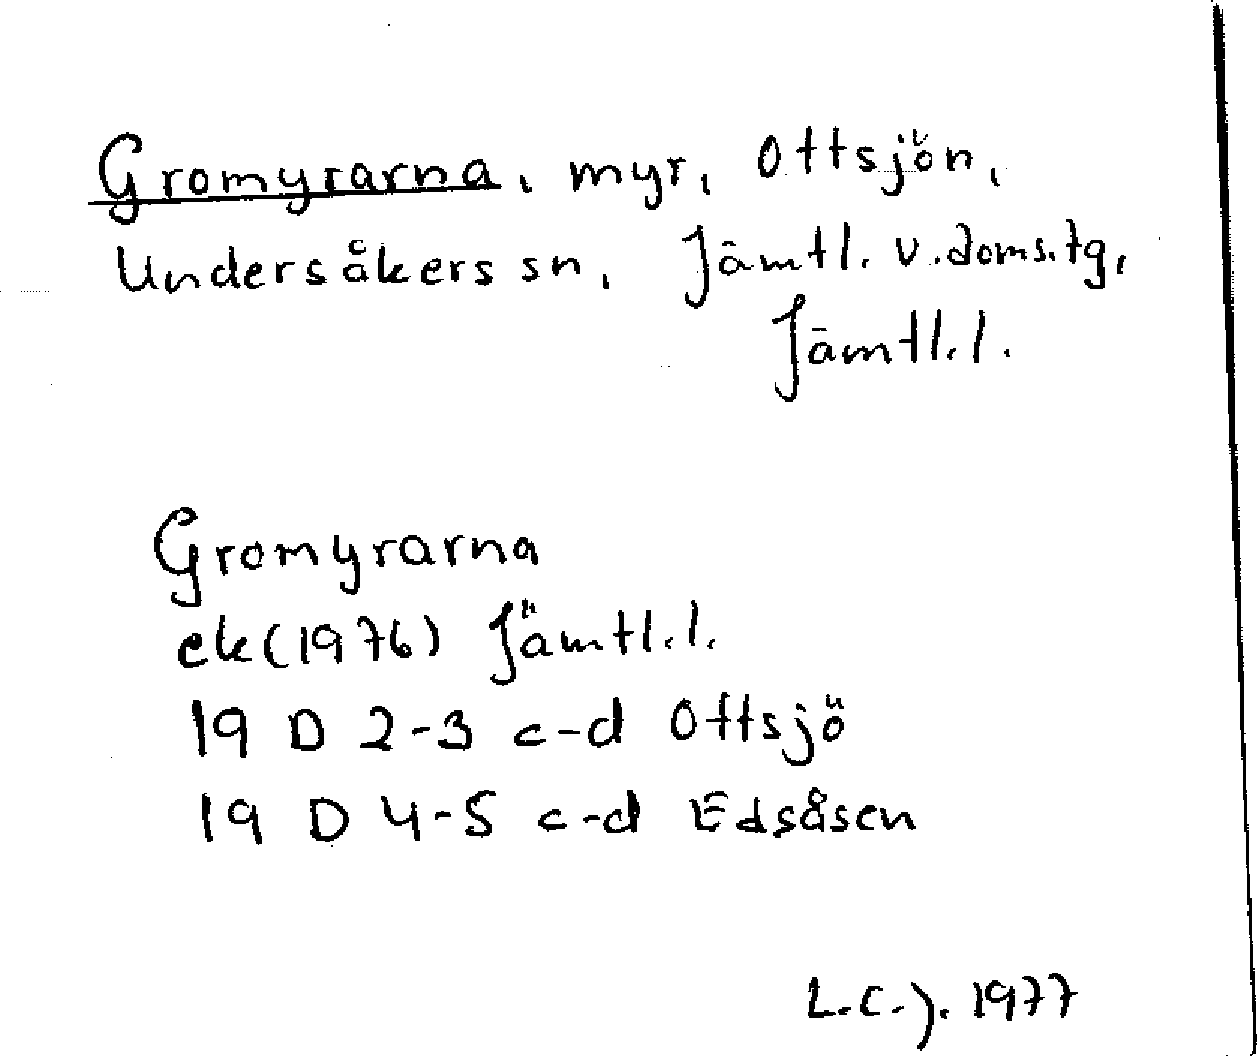 Gromyrarna, myr, Ottsjön,
Undersåkers sn, Jämtl. v. doms.tg,
Jämtl.l.
Gromyrarna
ek(1976) Jämtl.l.
19 D 2-3 c-d Ottsjö
19 D 4-5 c-d Edsåsen
L.C.J. 1977